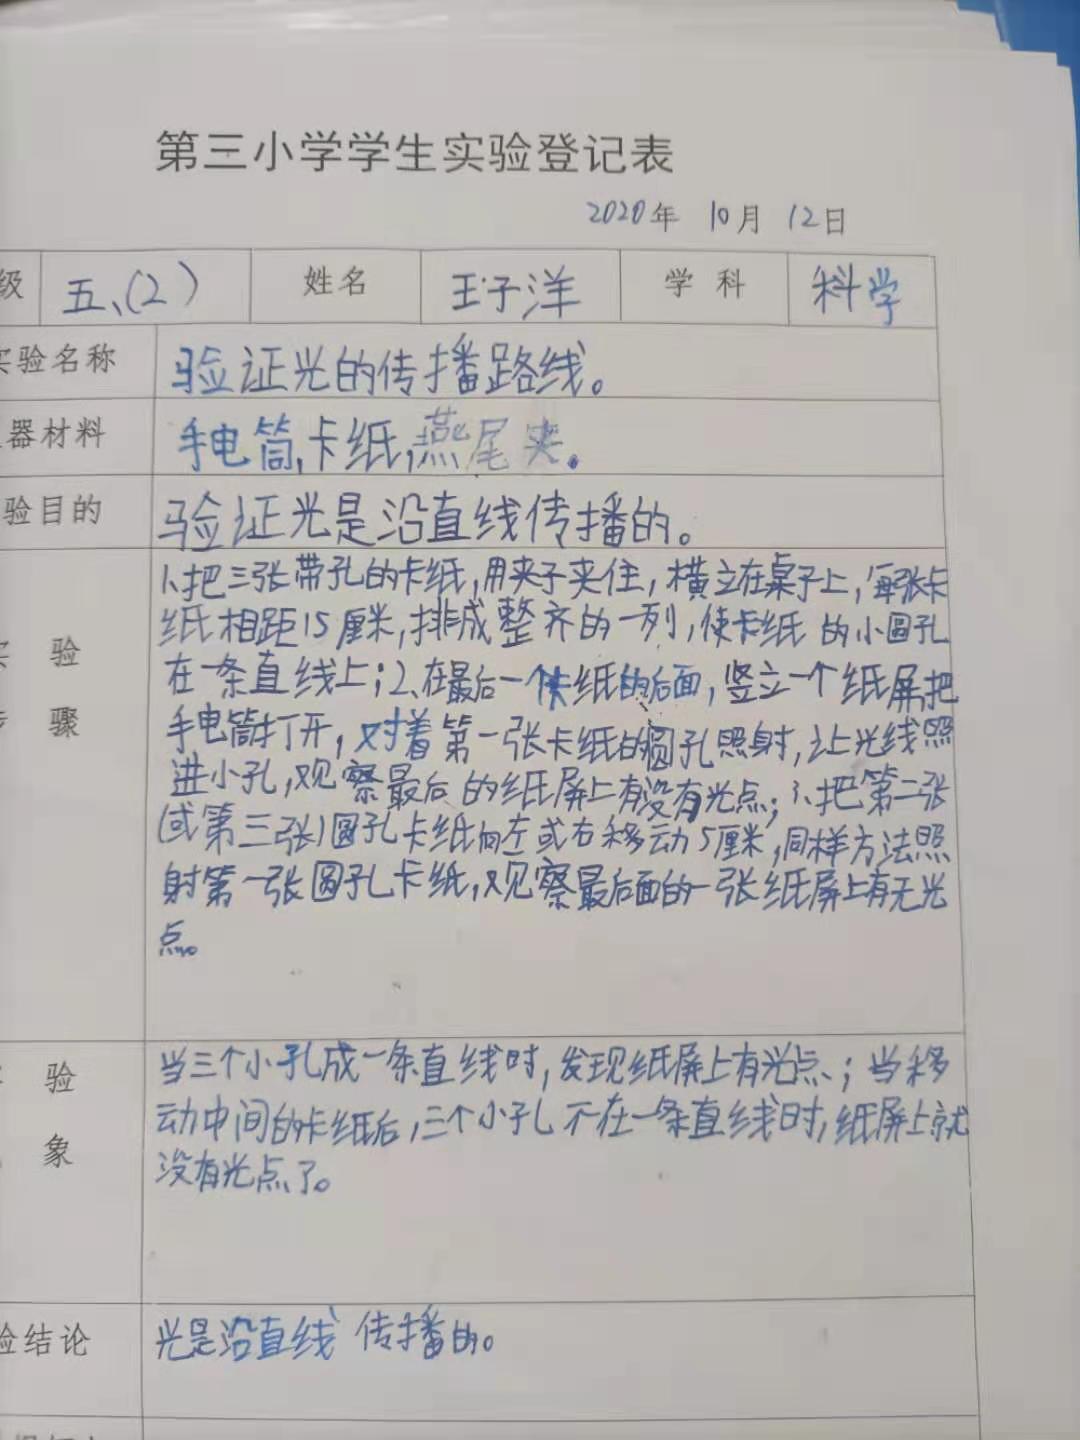 第三小学学生实验登记表
2020年 10月 12日
级 五、(2) 姓名 王子洋 学科 科学
实验名称 验证光的传播路线。
器材料 手电筒,卡纸,燕尾夹。
验目的 验证光是沿直线传播的。
1、把三张带孔的卡纸,用夹子夹住,横立在桌子上,每张卡
纸相距15厘米,排成整齐的一列,使卡纸的小圆孔
实验 在一条直线上;2、在最后一个卡纸的后面,竖立一个纸屏把
骤 手电筒打开,对着第一张卡纸的圆孔照射,让光线照
进小孔,观察最后的纸屏上有没有光点;3、把第二张
(或第三张)圆孔卡纸向左或右移动5厘米,同样方法照
射第一张圆孔卡纸,观察最后面的一张纸屏上有无光
点。
验 当三个小孔成一条直线时,发现纸屏上有光点、;当移
动中间的卡纸后,三个小孔不在一条直线时,纸屏上就
象 没有光点了。
验结论 光是沿直线传播的。